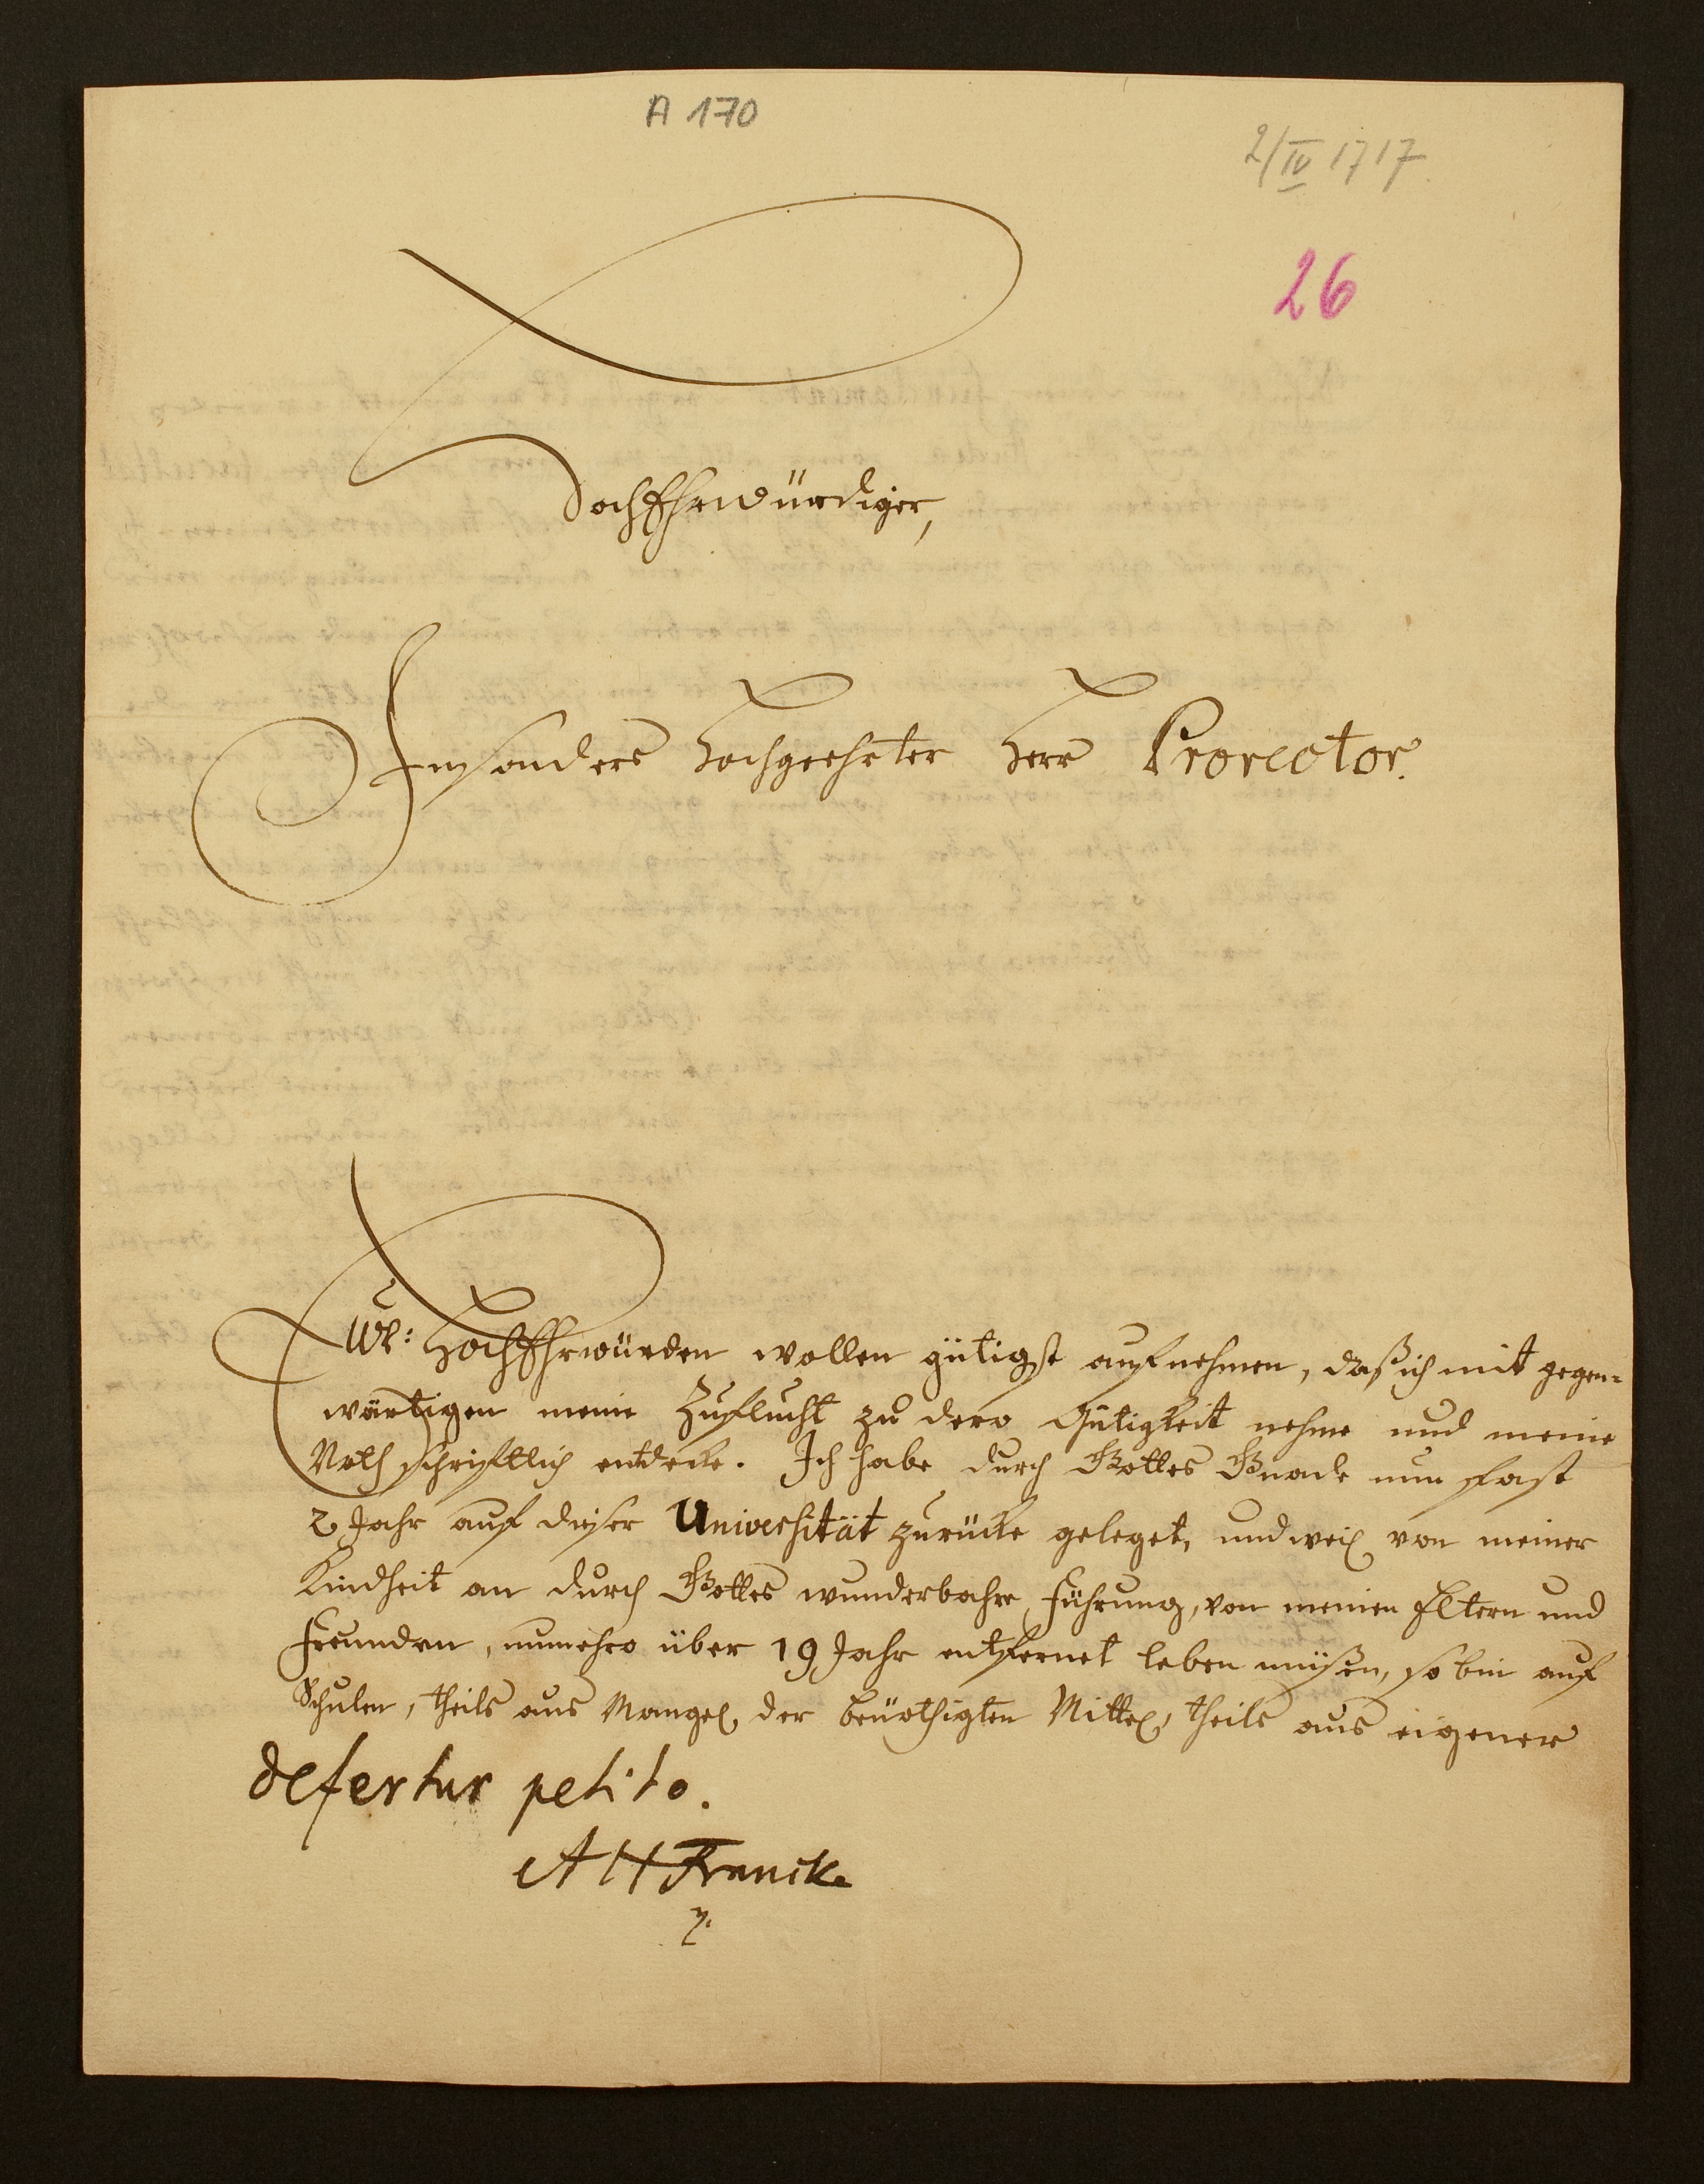 A 170
2/IV 1717.
26
HochEhrwürdiger,
Insonders Hochgeehrter Herr Prorector.
Ew: HochEhrwürden wollen gütigst aufnehmen, daß ich mit gegen=
wärtigen meine Zuflucht zu dero Gütigkeit nehme und meine
Noth schrifftlich entdecke. Ich habe durch Gottes Gnade nun fast
2 Jahr auf dieser Universität zurücke geleget, und weil von meiner
Kindheit an durch Gottes wunderbahre Führung, von meinen Eltern und
Freunden, nunmehro über 19 Jahr entfernet leben müßen, so bin auf
Schulen, theils aus Mangel der benöthigten Mittel, theils aus eigener
defertur petito.
AHFrancke